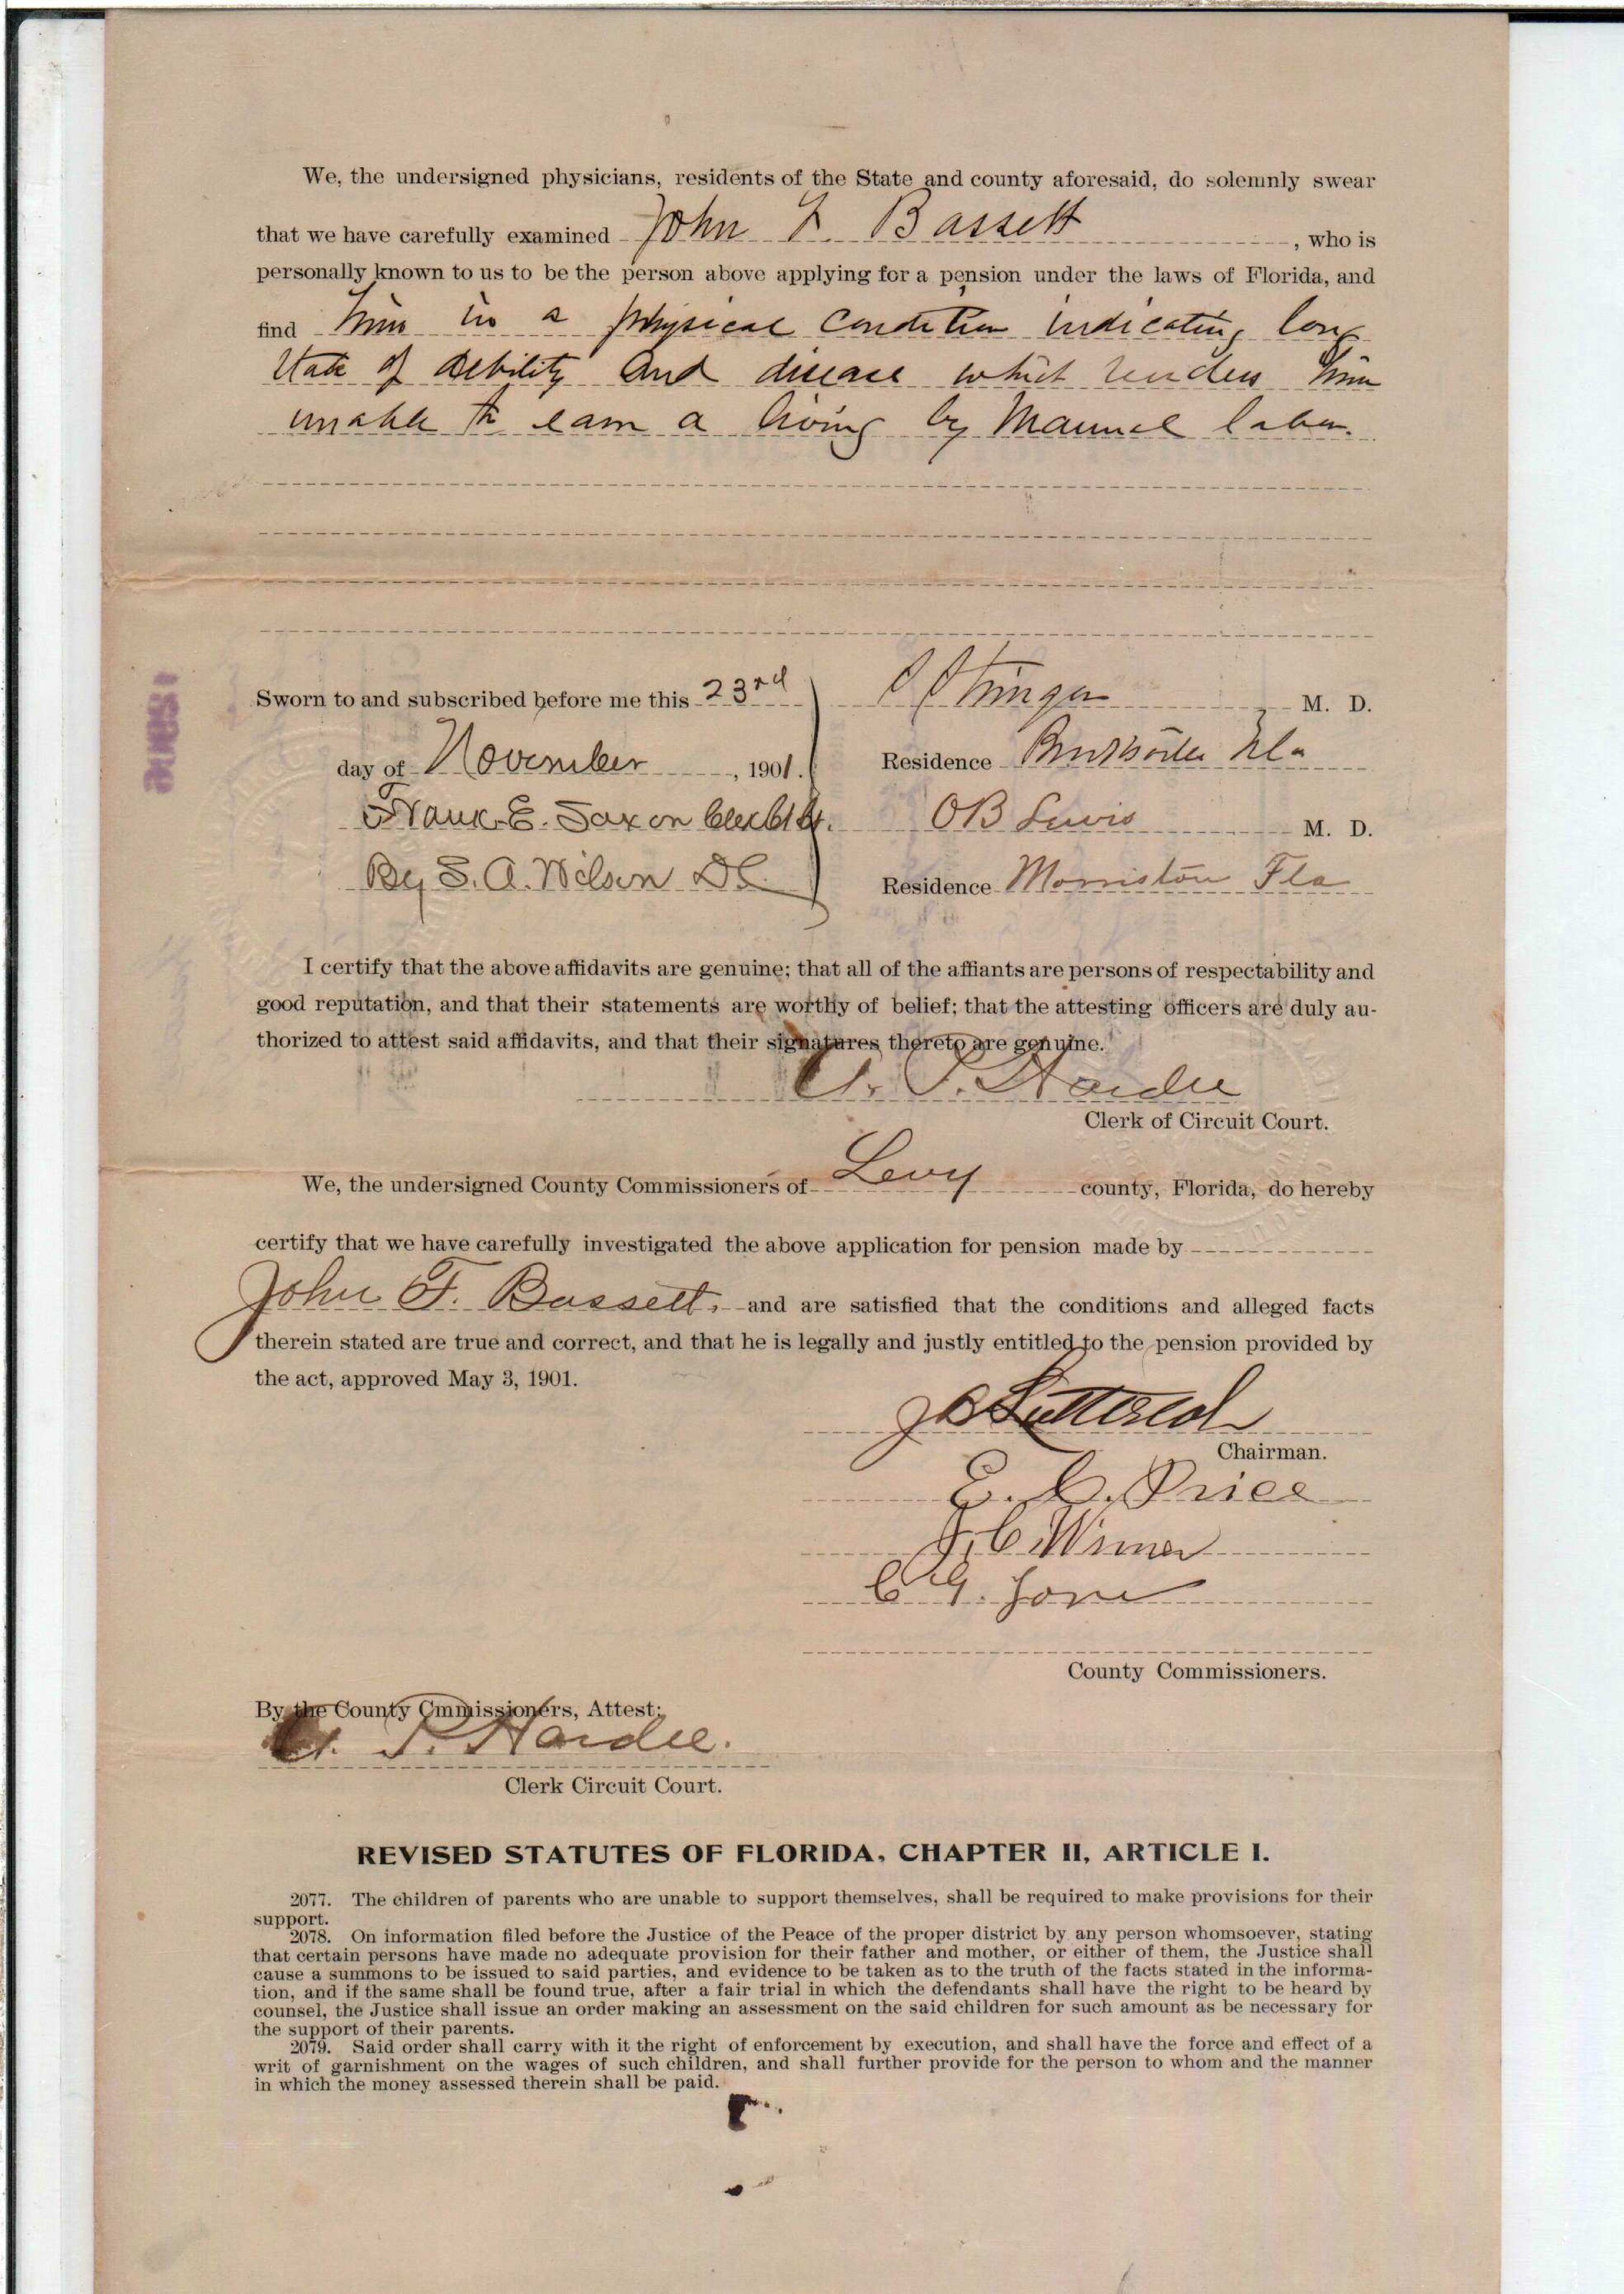 We, the undersigned physicians, residents of the State and county aforesaid, do solemnly swear
that we have carefully examined John F. Bassett, who is
personally known to us to be the person above applying for a pension under the laws of Florida, and
find him in a physical condition indicating long
state of debility and disease which renders him
unable to earn a living by Manuel labor.
Sworn to and subscribed before me this 23rd
S Stringer M. D.
day of November, 1901.
Residence Brooksville Fla
Frank E. Saxon Clerk
OB Lewis M. D.
By S. A. Wilson DC
Residence Morriston Fla
I certify that the above affidavits are genuine; that all of the affiants are persons of respectability and
good reputation, and that their statements are worthy of belief; that the attesting officers are duly au-
thorized to attest said affidavits, and that their signatures thereto are genuine.
P. Hardee
Clerk of Circuit Court.
We, the undersigned County Commissioners of Levy county, Florida, do hereby
certify that we have carefully investigated the above application for pension made by
John F. Bassett, and are satisfied that the conditions and alleged facts
therein stated are true and correct, and that he is legally and justly entitled to the pension provided by
the act, approved May 3, 1901.
JB Lutterloh
Chairman.
E. C. Price
J. C.
C G. Jones
County Commissioners.
By the County Cmmissioners, Attest:
P. Hardee.
Clerk Circuit Court.
REVISED STATUTES OF FLORIDA, CHAPTER II, ARTICLE I.
2077. The children of parents who are unable to support themselves, shall be required to make provisions for their
support.
2078. On information filed before the Justice of the Peace of the proper district by any person whomsoever, stating
that certain persons have made no adequate provision for their father and mother, or either of them, the Justice shall
cause a summons to be issued to said parties, and evidence to be taken as to the truth of the facts stated in the informa-
tion, and if the same shall be found true, after a fair trial in which the defendants shall have the right to be heard by
counsel, the Justice shall issue an order making an assessment on the said children for such amount as be necessary for
the support of their parents.
2079. Said order shall carry with it the right of enforcement by execution, and shall have the force and effect of a
writ of garnishment on the wages of such children, and shall further provide for the person to whom and the manner
in which the money assessed therein shall be paid.